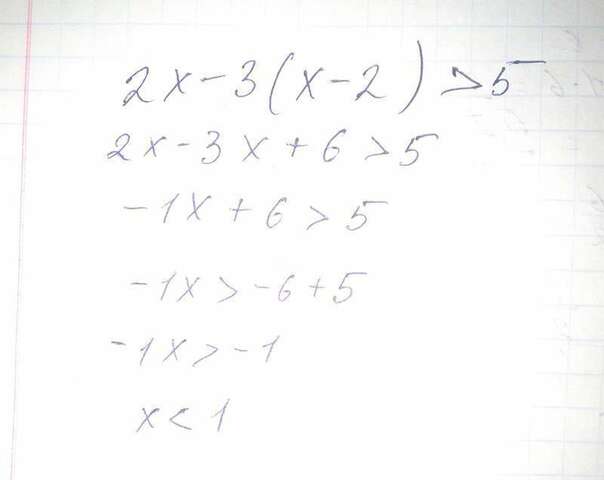 2x-3(x-2)>5
2x-3x+6>5
-1x+6>5
-1x>-6+5
-1x>-1
x<1